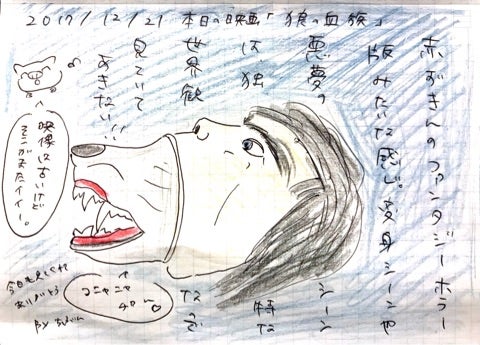 2017/12/21 本日の映画「狼の血族」
赤ずきんのファンタジーホラー
版みたいな感じ。変身シーンや
悪夢のシーン
は、独特な
世界観なので
見ていて
あきない!!
映像は古いけど
そこがまたイイー。
コニャニャ
チャ〜♡
今日も見てくれて
ありがとう
by